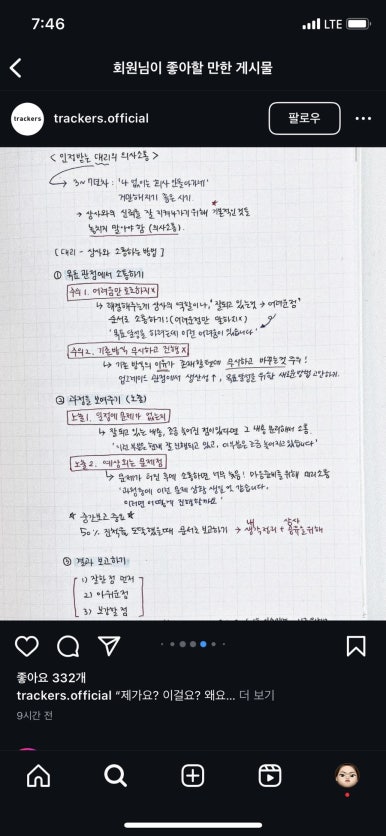 7:46
LTE
회원님이 좋아할 만한 게시물
trackers
trackers.official
팔로우
< 인정받는 대리의 의사소통 >
3~7년차 : '나 없이는 회사 안돌아가네'
거만해지기 좋은 시기.
→ 상사와의 신뢰를 잘 지켜나가기 위해 기본적인 것들
놓치지 말아야 함 (의사소통).
[ 대리 - 상사와 소통하는 방법 ]
① 목표 관점에서 소통하기
주의 1. 어려움만 토로하지 X
→ 해결해주는게 상사의 역할이나, "잘되고 있는것 → 어려운점"
순서로 소통하기! (어려운점만 말하지 X)
"목표 달성을 하려는데 이런 어려움이 있습니다"
주의 2. 기존방식 무시하고 진행 X
→ 기존 방식의 이유가 존재할텐데 무시하고 바꾸는것 주의!
업그레이드 관점에서 생산성↑, 목표달성을 위한 새로운방법 고민하기.
② 과정을 보여주기 (노출)
노출 1. 일정에 문제가 없는지
→ 잘되고 있는 내용, 조금 늦어진 점이 있다면 그 내용 분리해서 소통.
"이런 부분은 현재 잘 진행되고 있고, 이부분은 조금 늦어지고 있습니다"
노출 2. 예상되는 문제점
→ 문제가 터진 후에 소통하면 너무 늦음! 마음준비를 위해 미리소통
"과정중에 이런 문제 상황 생길것 같습니다.
이러면 어떻게 진행할까요"
* 중간보고 중요 *
50% 진척률 도달했을때 문서로 보고하기 → 내 생각정리 + 상사 공유를위해
③ 결과 보고하기
1) 잘한점 먼저
2) 아쉬운점
3) 보강할 점
좋아요 332개
trackers.official “제가요? 이걸요? 왜요... 더 보기
9시간 전